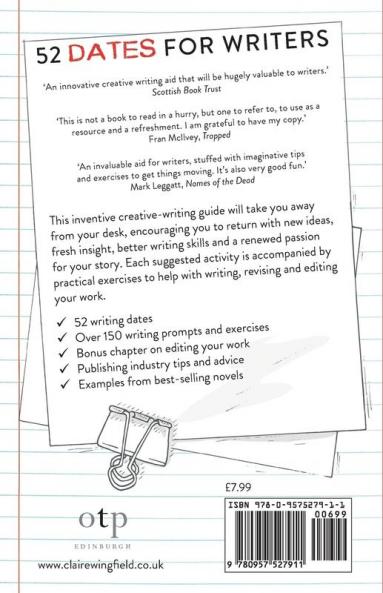 52 DATES FOR WRITERS
‘An innovative creative writing aid that will be hugely valuable to writers.’
Scottish Book Trust
‘This is not a book to read in a hurry, but one to refer to, to use as a
resource and a refreshment. I am grateful to have my copy.’
Fran McIlvey, Trapped
‘An invaluable aid for writers, stuffed with imaginative tips
and exercises to get things moving. It’s also very good fun.’
Mark Leggatt, Names of the Dead
This inventive creative-writing guide will take you away
from your desk, encouraging you to return with new ideas,
fresh insight, better writing skills and a renewed passion
for your story. Each suggested activity is accompanied by
practical exercises to help with writing, revising and editing
your work.
✓ 52 writing dates
✓ Over 150 writing prompts and exercises
✓ Bonus chapter on editing your work
✓ Publishing industry tips and advice
✓ Examples from best-selling novels
£7.99
otp
EDINBURGH
www.clairewingfield.co.uk
ISBN 978-0-9575279-1-1
00699
9 780957 527911